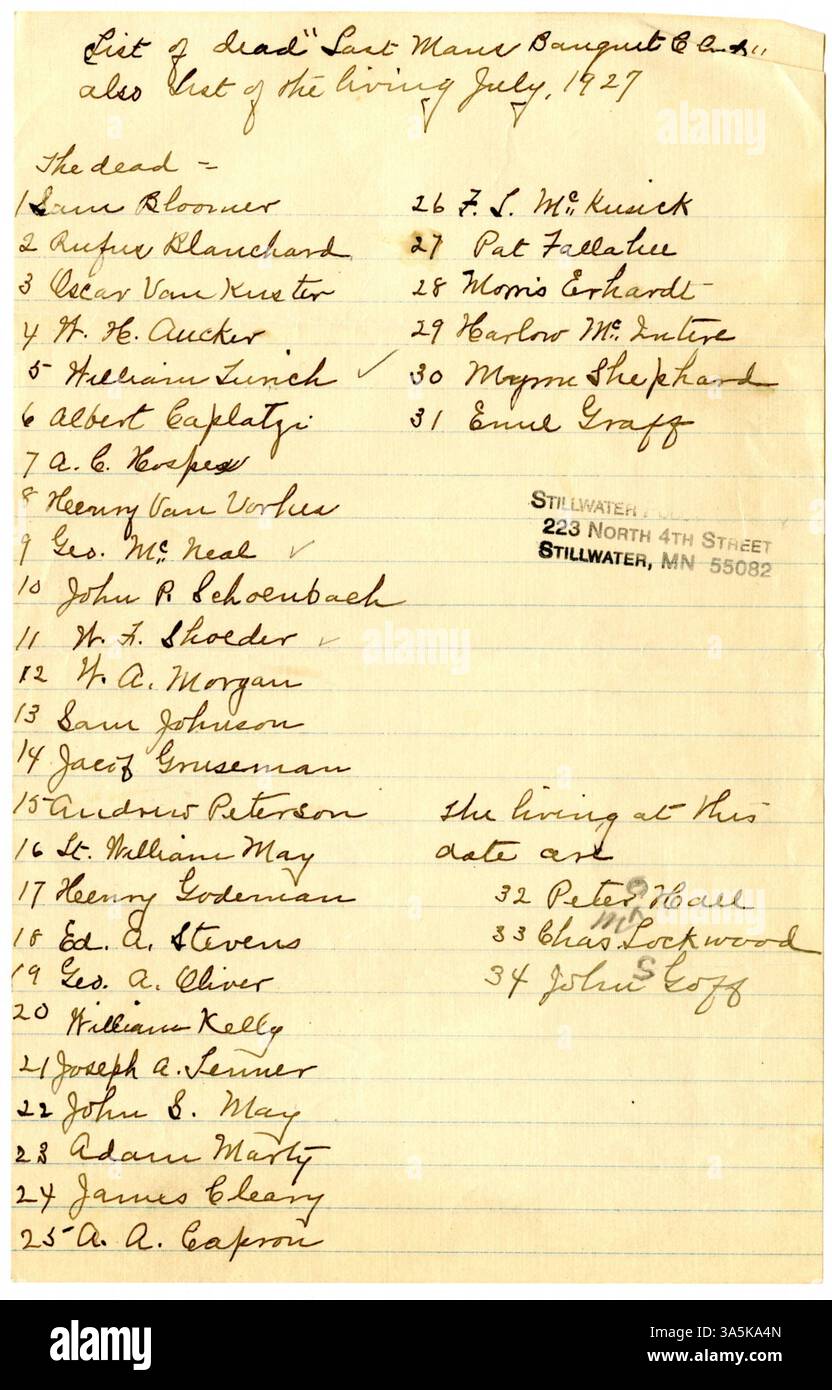 List of dead "Last Mans Banquet Club"
also List of the living July, 1927
The dead =
1 Sam Bloomer
2 Rufus Blanchard
3 Oscar Van Kuster
4 W. H. Aucker
5 William Lurich ✓
6 Albert Caplatzi
7 A. C. Hospes
8 Heenry Van Vorhes
9 Geo. Mc Neal ✓
10 John P. Schoenbach
11 W. F. Shoeder ✓
12 W. A. Morgan
13 Sam Johnson
14 Jacof Gruseman
15 Andrew Peterson
16 Lt. William May
17 Heenry Godeman
18 Ed. A. Stevens
19 Geo. A. Oliver
20 William Kelly
21 Joseph A. Lenner
22 John S. May
23 Adam Marty
24 James Cleary
25 A. A. Capron
26 F. L. Mc Kusick
27 Pat Fallahee
28 Morris Erhardt
29 Harlow Mc Intire
30 Myron Shephard
31 Emil Graff
STILLWATER
223 NORTH 4TH STREET
STILLWATER, MN 55082
The living at this
date are
32 Peter O Hall
33 Chas M Lockwood
34 John S Goff
alamy
Image ID: 3A5KA4N
www.alamy.com